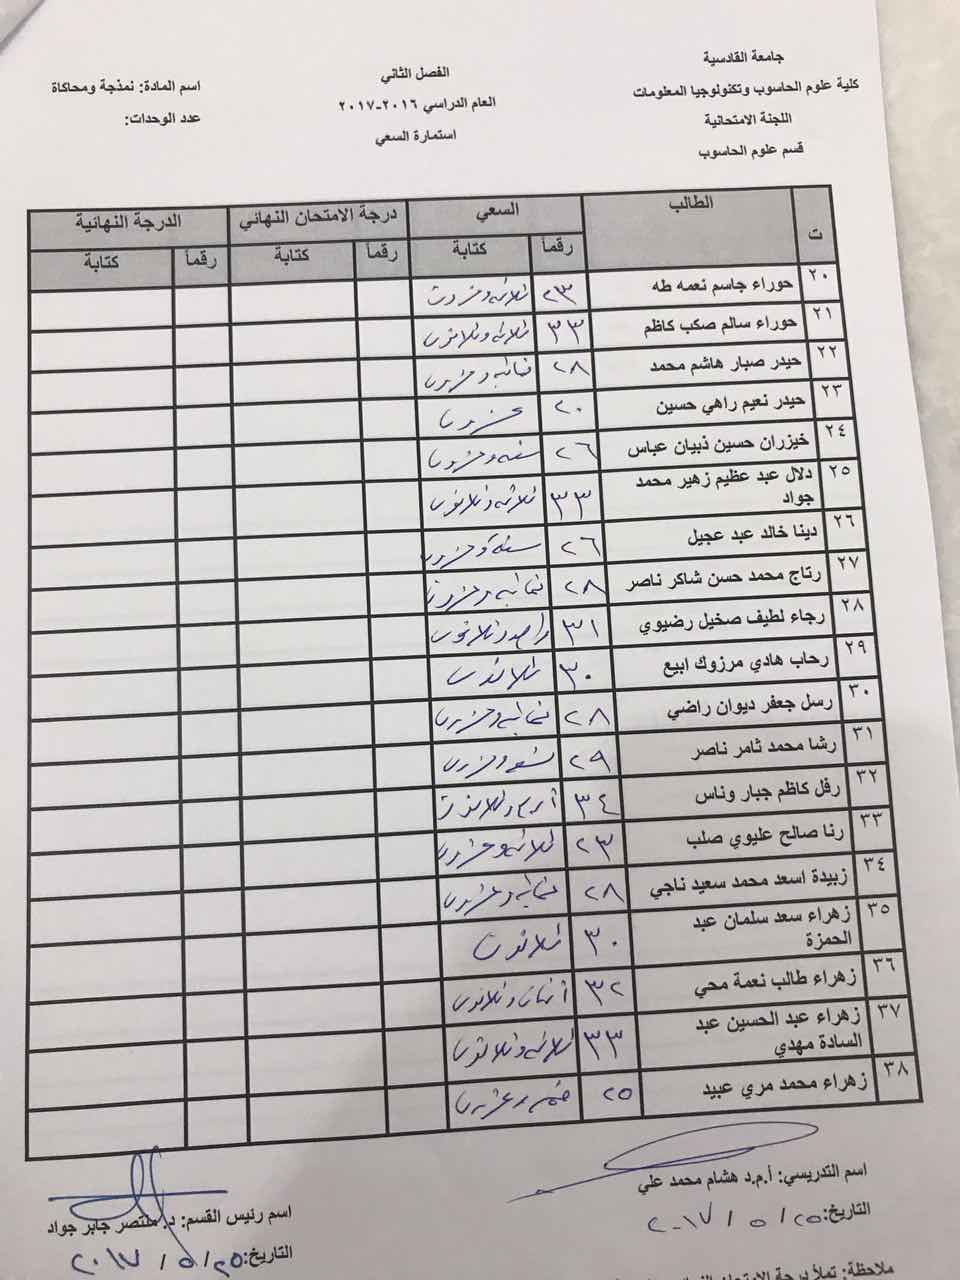 جامعة القادسية
كلية علوم الحاسوب وتكنولوجيا المعلومات
اللجنة الامتحانية
قسم علوم الحاسوب
الفصل الثاني
العام الدراسي ٢٠١٦-٢٠١٧
استمارة السعي
اسم المادة: نمذجة ومحاكاة
عدد الوحدات:
ت الطالب السعي درجة الامتحان النهائي الدرجة النهائية
رقماً كتابة رقماً كتابة رقماً كتابة
٢٠ حوراء جاسم نعمه طه ٢٣ ثلاثة وعشرون
٢١ حوراء سالم صكب كاظم ٣٣ ثلاثة وثلاثون
٢٢ حيدر صبار هاشم محمد ٢٨ ثمانية وعشرون
٢٣ حيدر نعيم راهي حسين ٢٠ عشرون
٢٤ خيزران حسين ذبيان عباس ٢٦ ستة وعشرون
٢٥ دلال عبد عظيم زهير محمد جواد ٣٣ ثلاثة وثلاثون
٢٦ دينا خالد عبد عجيل ٢٦ ستة وعشرون
٢٧ رتاج محمد حسن شاكر ناصر ٢٨ ثمانية وعشرون
٢٨ رجاء لطيف صخيل رضيوي ٣١ واحد وثلاثون
٢٩ رحاب هادي مرزوك ابيع ٣٠ ثلاثون
٣٠ رسل جعفر ديوان راضي ٢٨ ثمانية وعشرون
٣١ رشا محمد ثامر ناصر ٢٩ تسعة وعشرون
٣٢ رفل كاظم جبار وناس ٣٤ أربع وثلاثون
٣٣ رنا صالح عليوي صلب ٢٣ ثلاثة وعشرون
٣٤ زبيدة اسعد محمد سعيد ناجي ٢٨ ثمانية وعشرون
٣٥ زهراء سعد سلمان عبد الحمزة ٣٠ ثلاثون
٣٦ زهراء طالب نعمة محي ٣٢ أثنان وثلاثون
٣٧ زهراء عبد الحسين عبد السادة مهدي ٣٣ ثلاثة وثلاثون
٣٨ زهراء محمد مري عبيد ٢٥ خمس وعشرون
اسم التدريسي: أ.م.د هشام محمد علي
التاريخ: ٢٠١٧/٥/٢٥
اسم رئيس القسم: د. منتصر جابر جواد
التاريخ: ٢٠١٧/٥/٢٥
ملاحظة: تملأ درجة الامتحان